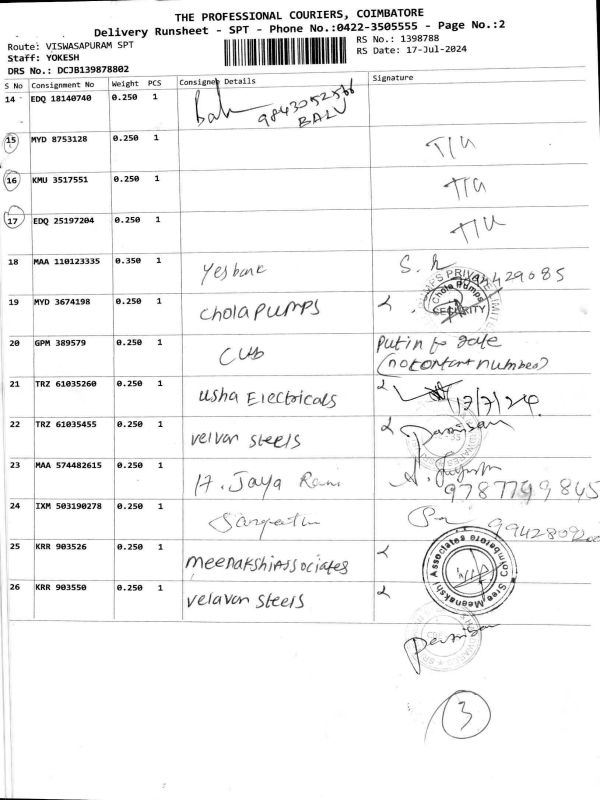 THE PROFESSIONAL COURIERS, COIMBATORE
Delivery Runsheet - SPT - Phone No.:0422-3505555 - Page No.:2
Route: VISWASAPURAM SPT RS No.: 1398788
Staff: YOKESH RS Date: 17-Jul-2024
DRS No.: DCJB139878802
S No Consignment No Weight PCS Consignee Details Signature
14 EDQ 18140740 0.250 1
BALU
15 MYD 8753128 0.250 1
16 KMU 3517551 0.250 1
17 EDQ 25197204 0.250 1
18 MAA 110123335 0.350 1 Yesbank
19 MYD 3674198 0.250 1 CholaPUMPS Chola Pumps SECURITY
20 GPM 389579 0.250 1 CUB Put in to gate
(no contact number)
21 TRZ 61035260 0.250 1 usha Electricals 17/7/24
22 TRZ 61035455 0.250 1 velvan steels
23 MAA 574482615 0.250 1 17. Jaya Ram
9787799845
24 IXM 503190278 0.250 1
25 KRR 903526 0.250 1 meenakshiAssociates Sree Meenakshi Associates Coimbatore
26 KRR 903550 0.250 1 velavan steels
3